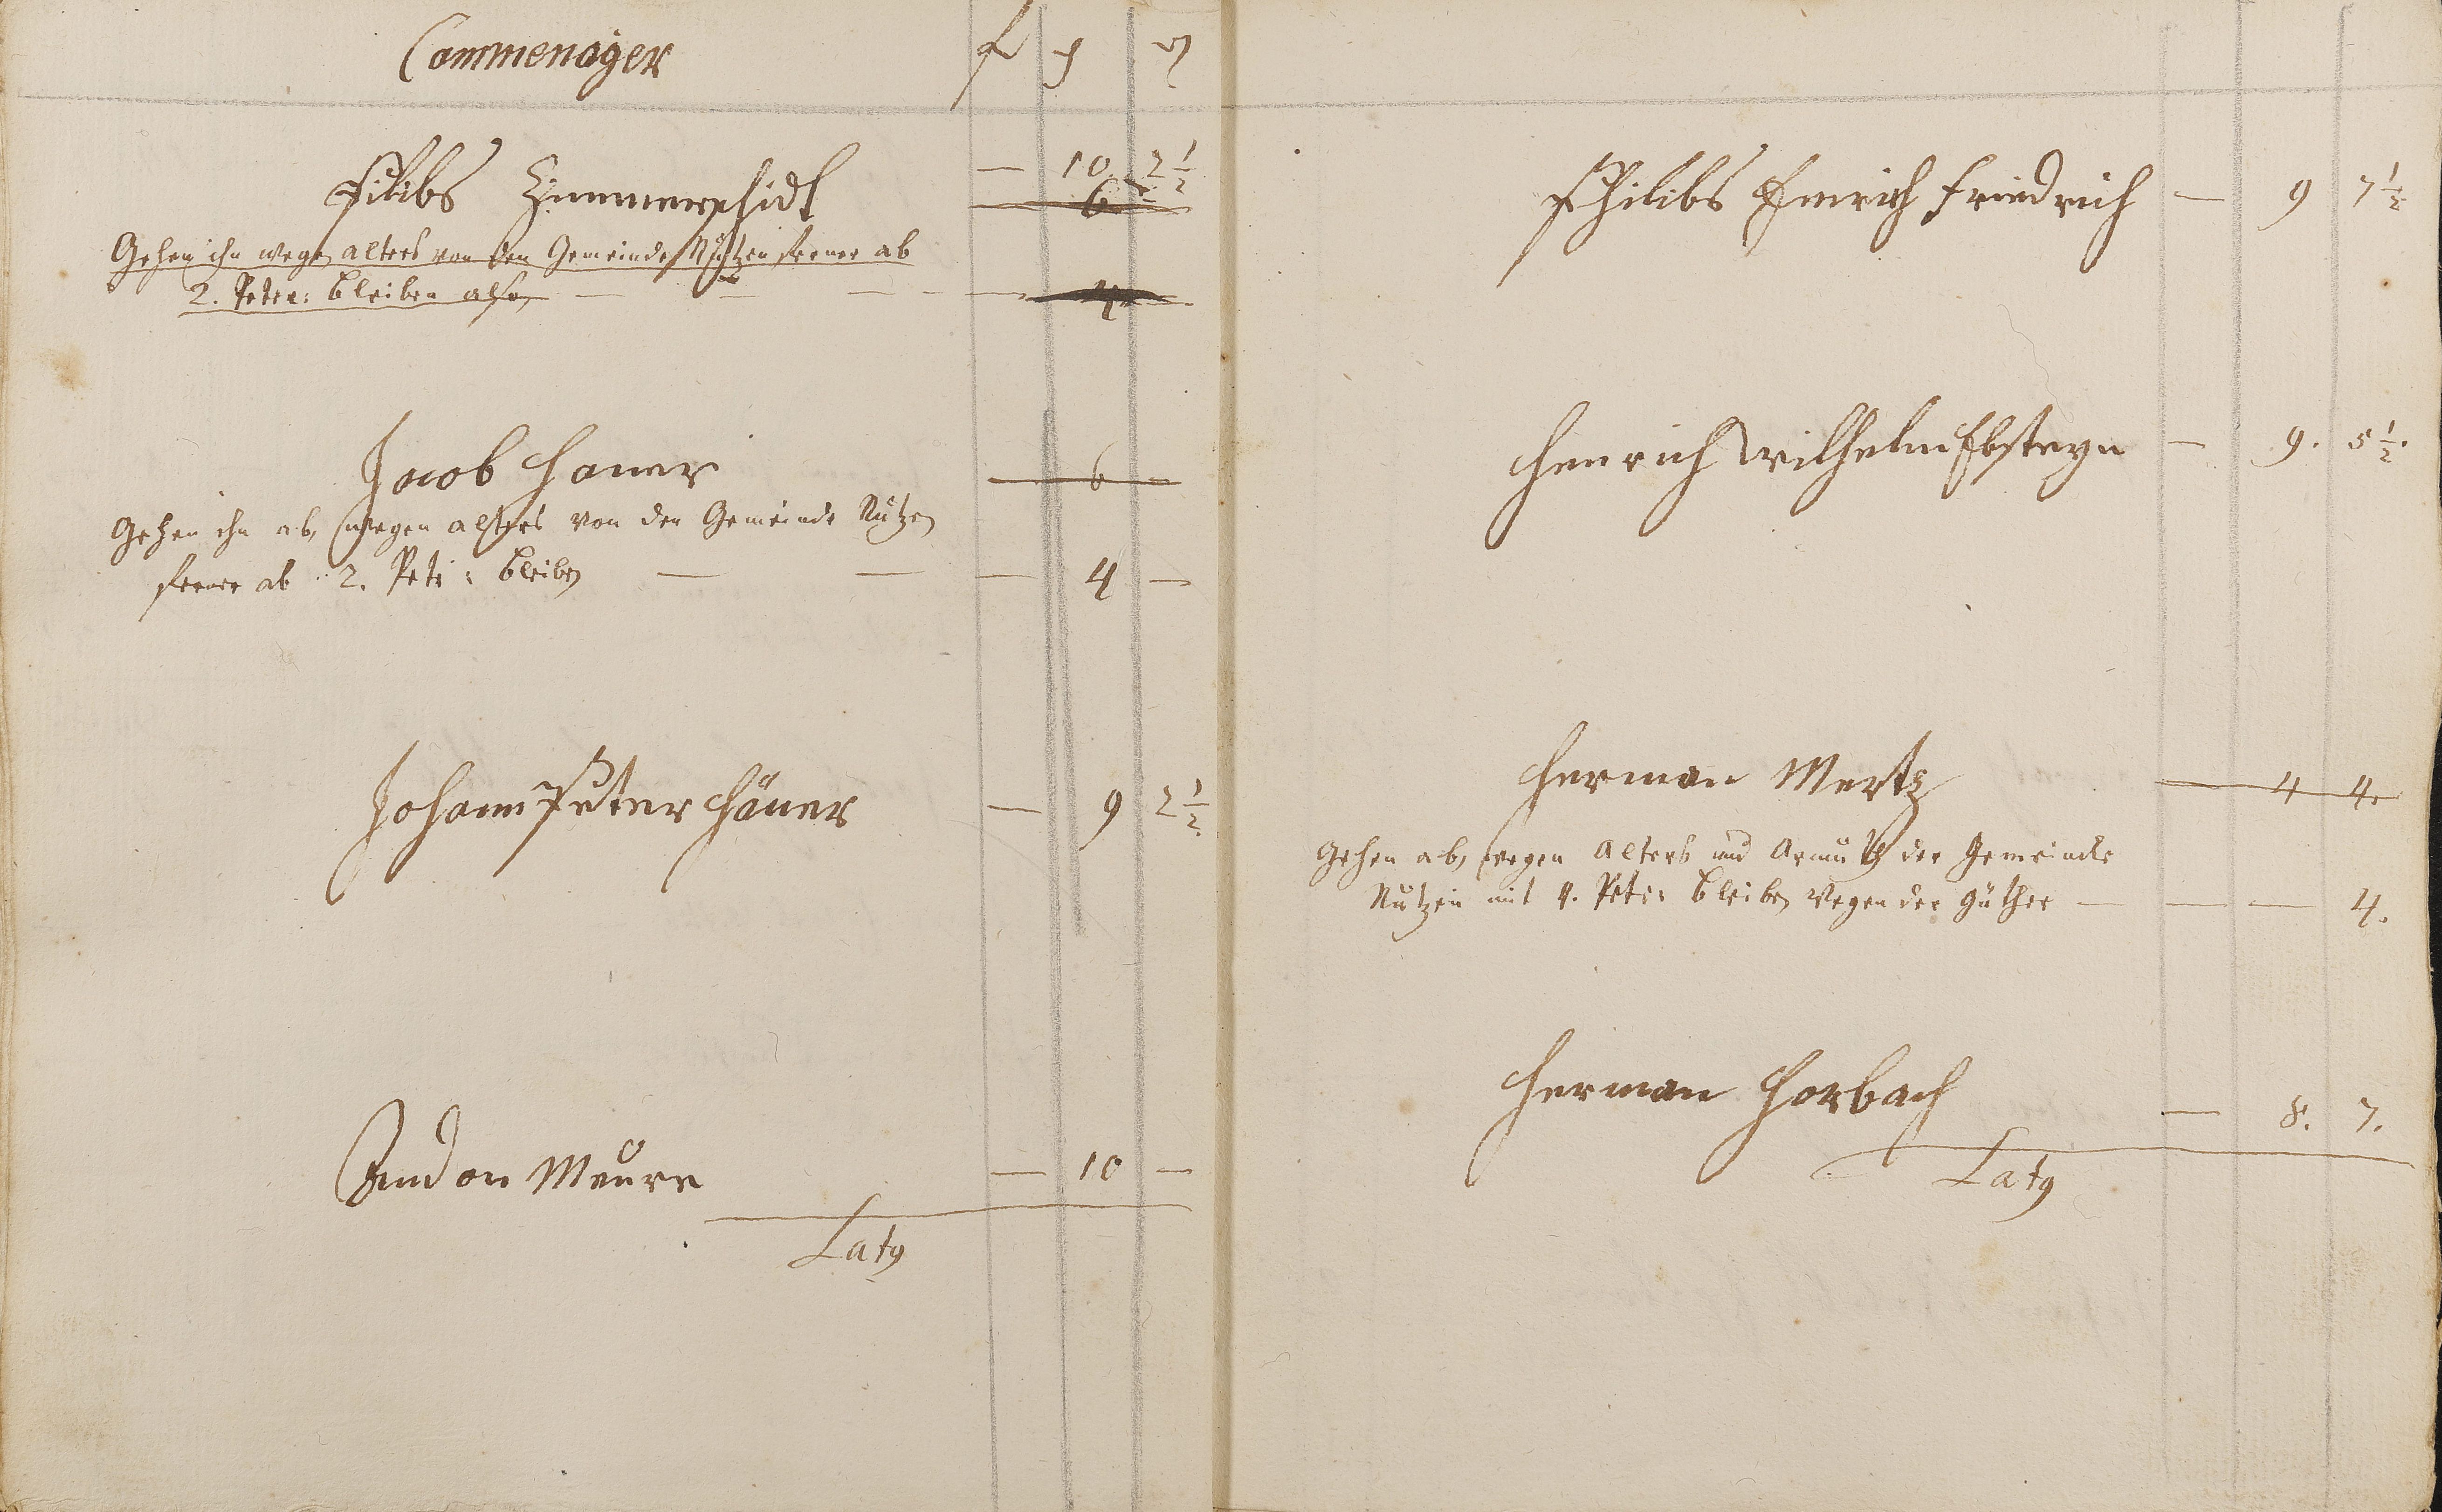 Cammenayer f ß ₰
Filibs Zimmerschidt — 10 2 1/2
6
Gehen ihn wegen alters von den Gemeinde Nützen ferner ab
2. Peter: bleiben also, — — — 4
Jacob Hauer — 6 —
Gehen ihn ab, wegen alters von den Gemeinde Nutzen
ferner ab 2. Pet: bleiben — — — 4 —
Johann Peter Häuer — 9 2 1/2
Meurer — 10 —
Lats
Philibs Henrich Friedrich — 9 7 1/2
Henrich Wilhelm Ebsteyn — 9. 5 1/2.
Herman Mertz — 4 4.
Gehen ab, wegen Alters und Armuth der Gemeinde
Nutzen mit 4. Pet: bleiben wegen der Güther — — — 4.
Herman Horbach — 8. 7.
Lats